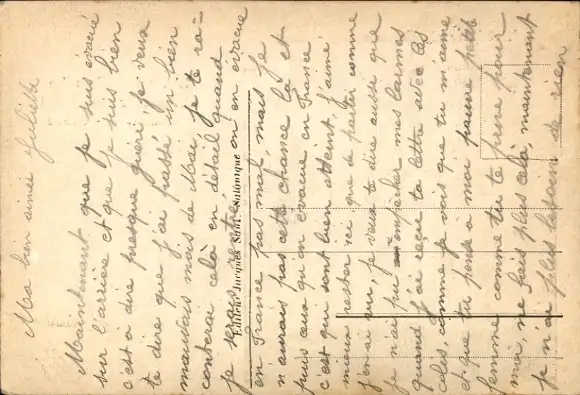 Ma bien aimée Juliette
Maintenant que je suis évacué
sur l'arrière et que je suis bien
c'est a dire presque guéri, je veux
te dire que j'ai passé un bien
mauvais mois de Mai, je te ra-
conterai celà en détail quand
je serai rentré, on en évacue
en France pas mal, mais je
n'aurais pas cette chance là et
puis ceux qu'on évacue en France
c'est qui sont bien atteint, j'aime
mieux rester ici que de partir comme
j'en ai vu, je veux te dire aussi que
je n'ai pu empêcher mes larmes
quand j'ai reçu ta lettre avec les
colis, comme je vois que tu m'aime
et que tu pense à moi pauvre petite
femme comme tu te prive pour
moi, ne fais plus celà maintenant
je n'ai plus besoin de rien
Editeur Jacques Saül, Salonique